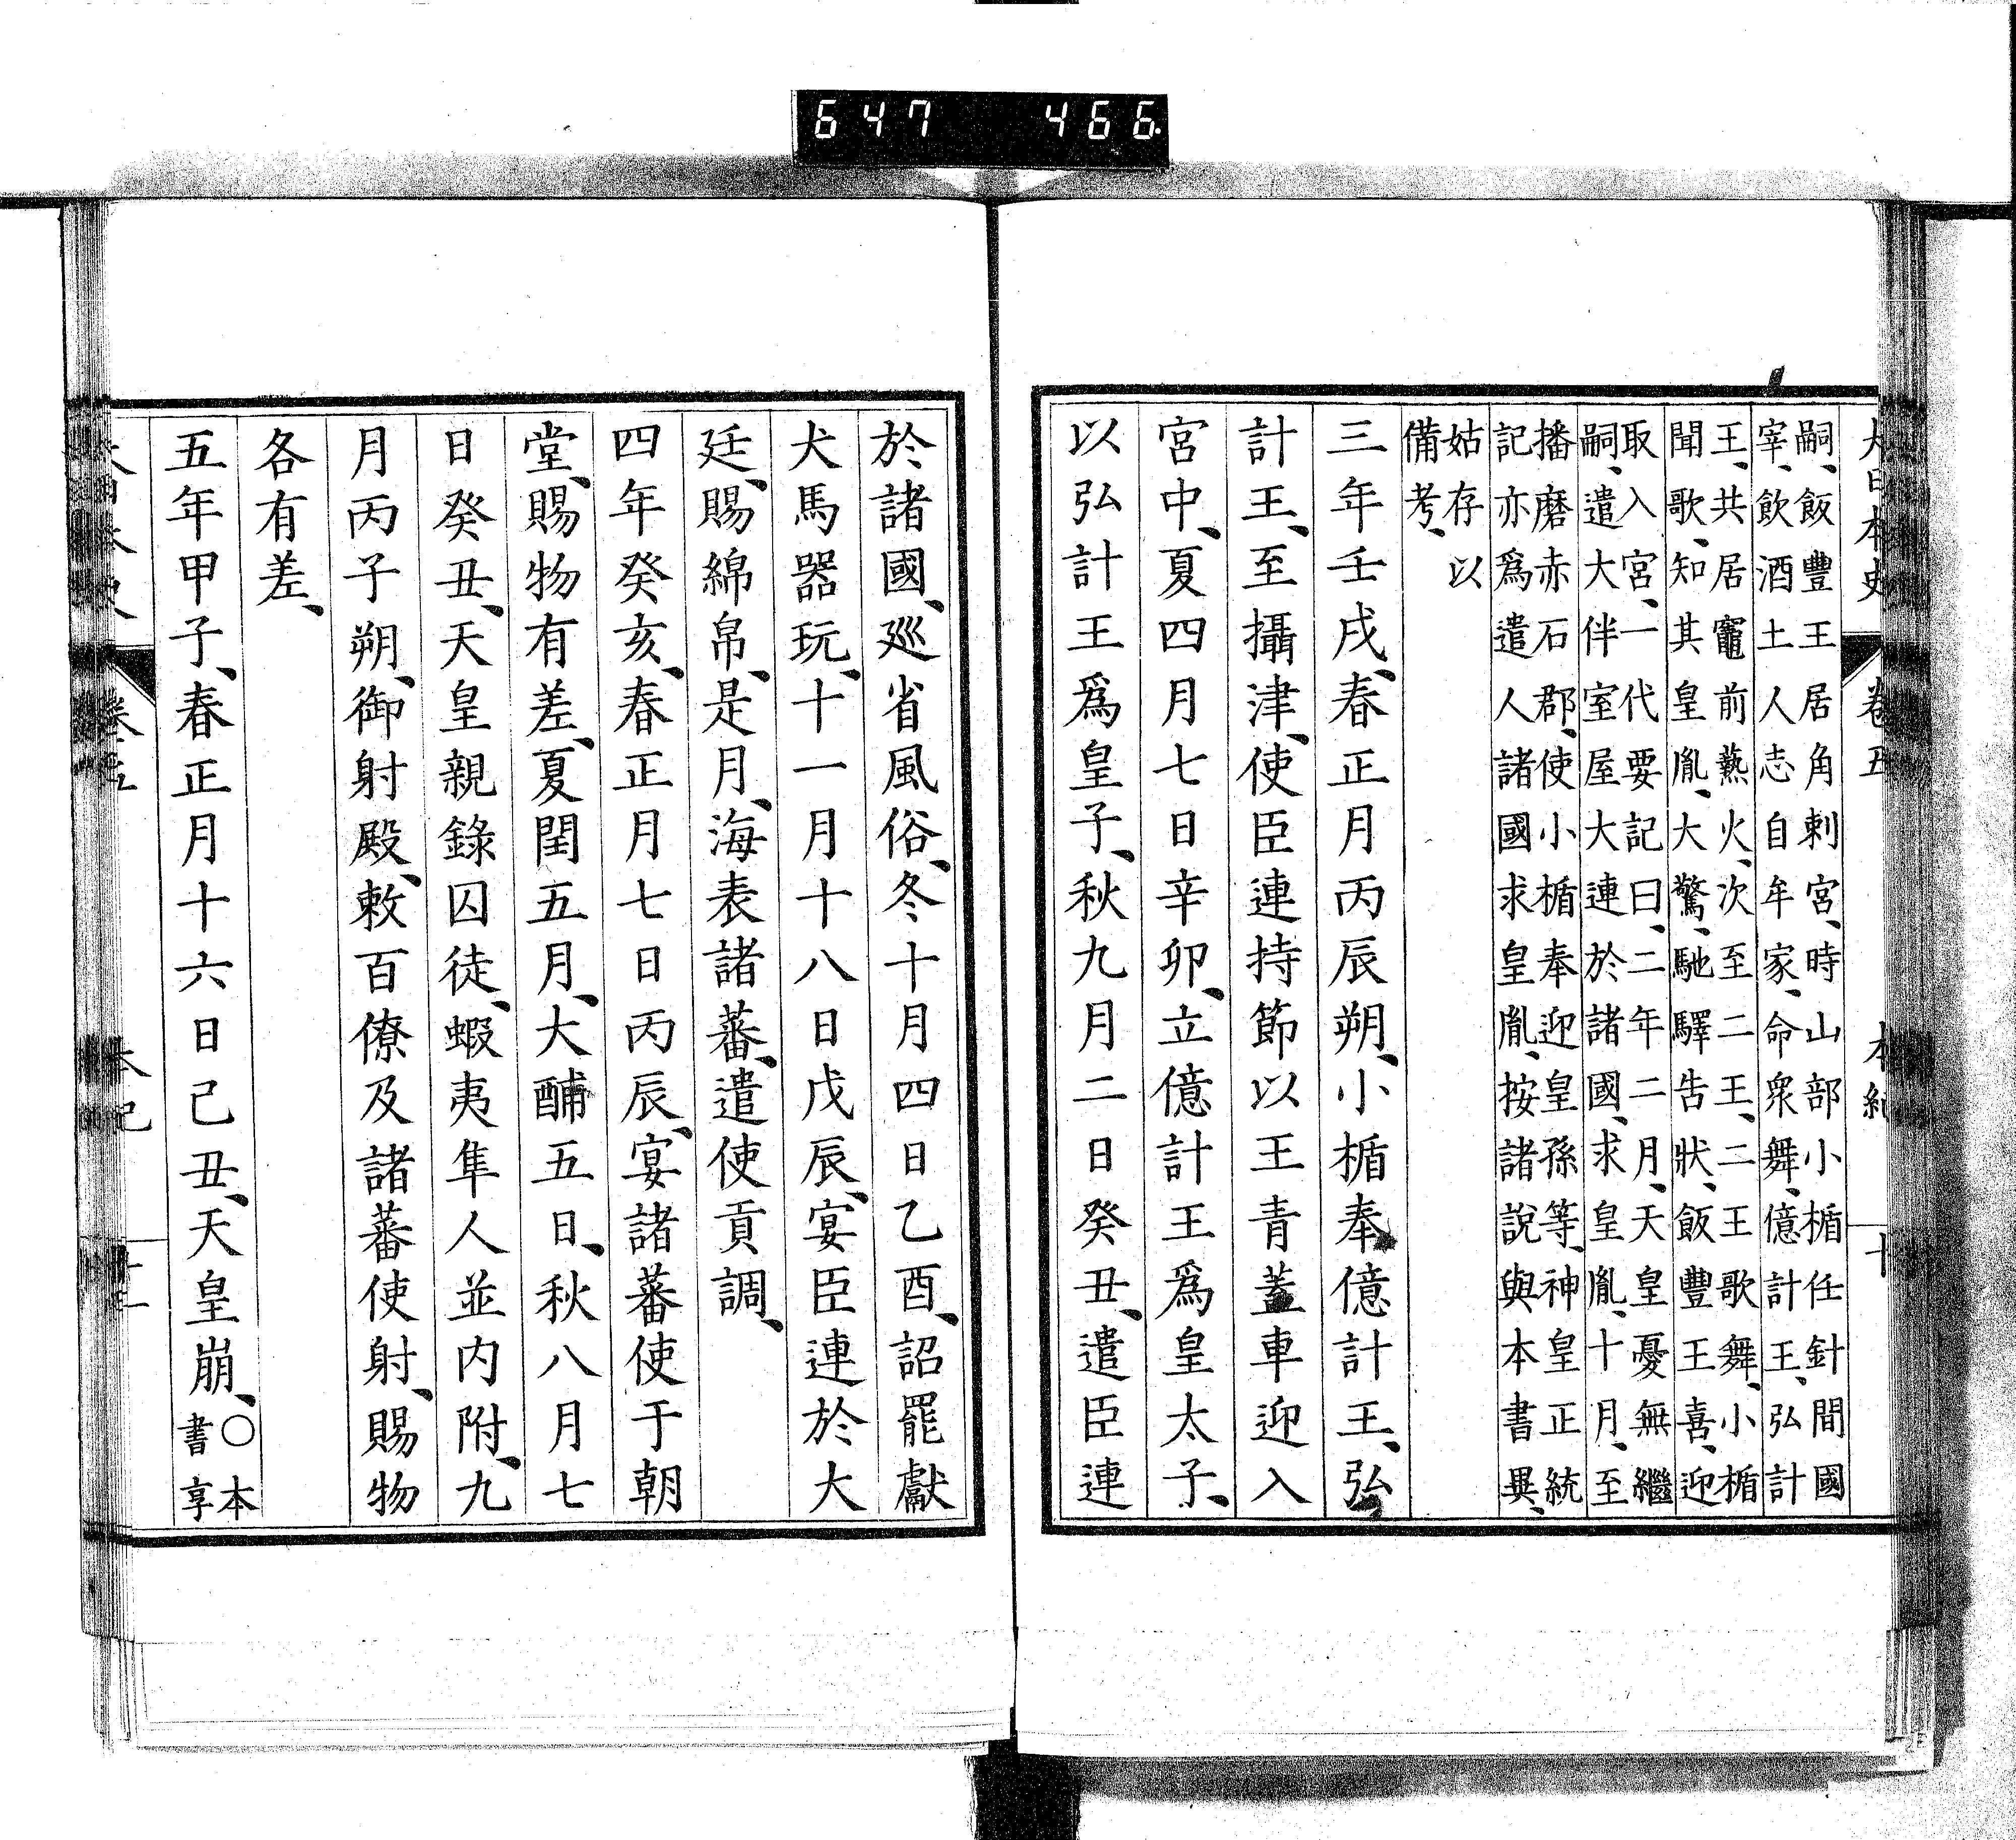 647 466
大日本史 卷五 本紀 十
嗣、飯豐王居角刺宮、時山部小楯任針間國
宰、飮酒土人志自牟家、命衆舞、億計王、弘計
王、共居竈前爇火、次至二王、二王歌舞、小楯
聞歌、知其皇胤、大驚、馳驛吿狀、飯豐王喜、迎
取入宮、一代要記曰、二年二月、天皇憂無繼
嗣、遣大伴室屋大連於諸國、求皇胤、十月、至
播磨赤石郡、使小楯奉迎皇孫等、神皇正統
記亦爲遣人諸國求皇胤、按諸說與本書異、
姑存以
備考、
三年壬戌、春正月丙辰朔、小楯奉億計王、弘
計王、至攝津、使臣連持節以王青蓋車迎入
宮中、夏四月七日辛卯、立億計王爲皇太子、
以弘計王爲皇子、秋九月二日癸丑、遣臣連
於諸國、廵省風俗、冬十月四日乙酉、詔罷獻
犬馬器玩、十一月十八日戊辰、宴臣連於大
廷、賜綿帛、是月、海表諸蕃、遣使貢調、
四年癸亥、春正月七日丙辰、宴諸蕃使于朝
堂、賜物有差、夏閏五月、大酺五日、秋八月七
日癸丑、天皇親錄囚徒、蝦夷隼人並内附、九
月丙子朔、御射殿、敕百僚及諸蕃使射、賜物
各有差、
五年甲子、春正月十六日己丑、天皇崩、〇本
書享